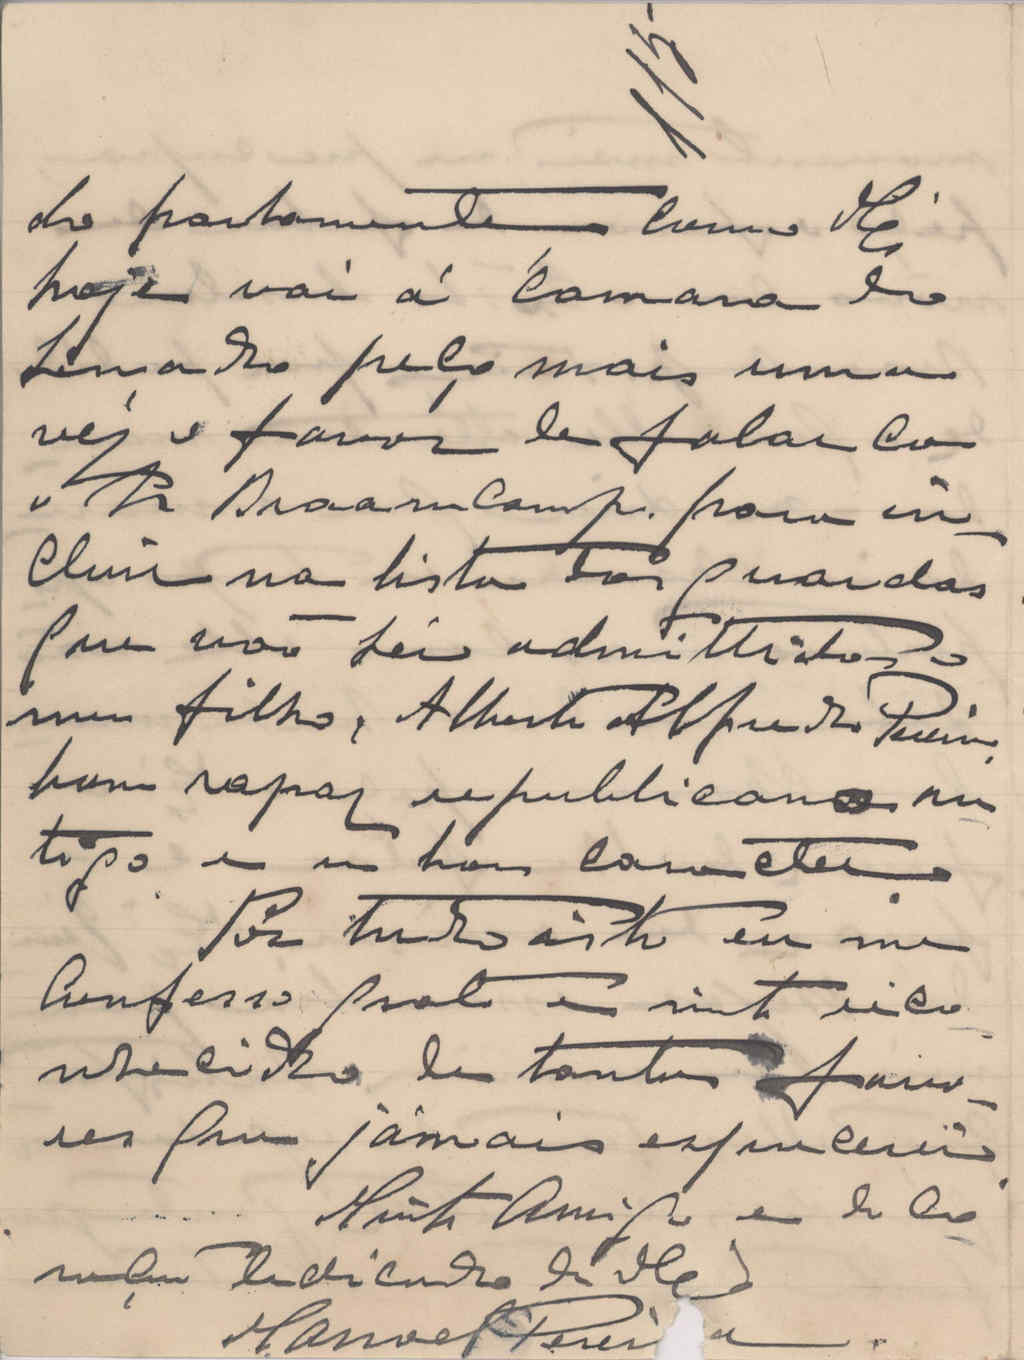 115
do partamente como V. Ex.
hoje vai á Camara do
Senado peço mais uma
vez o favor de falar co
o Sr Braamcamp. para in-
cluir na lista dos guardas
que vão sêr admittidos o
meu filho, Alberto Alfredo Pereira,
bom rapaz republicano an
tigo e um bom caracter.
Por tudo isto eu me
confesso grato e mt reco
nhecido de tantos favo-
res que jámais esquecerei.
Muito Amigo e do co
ração dedicado de V. Ex.
Manoel Pereira.